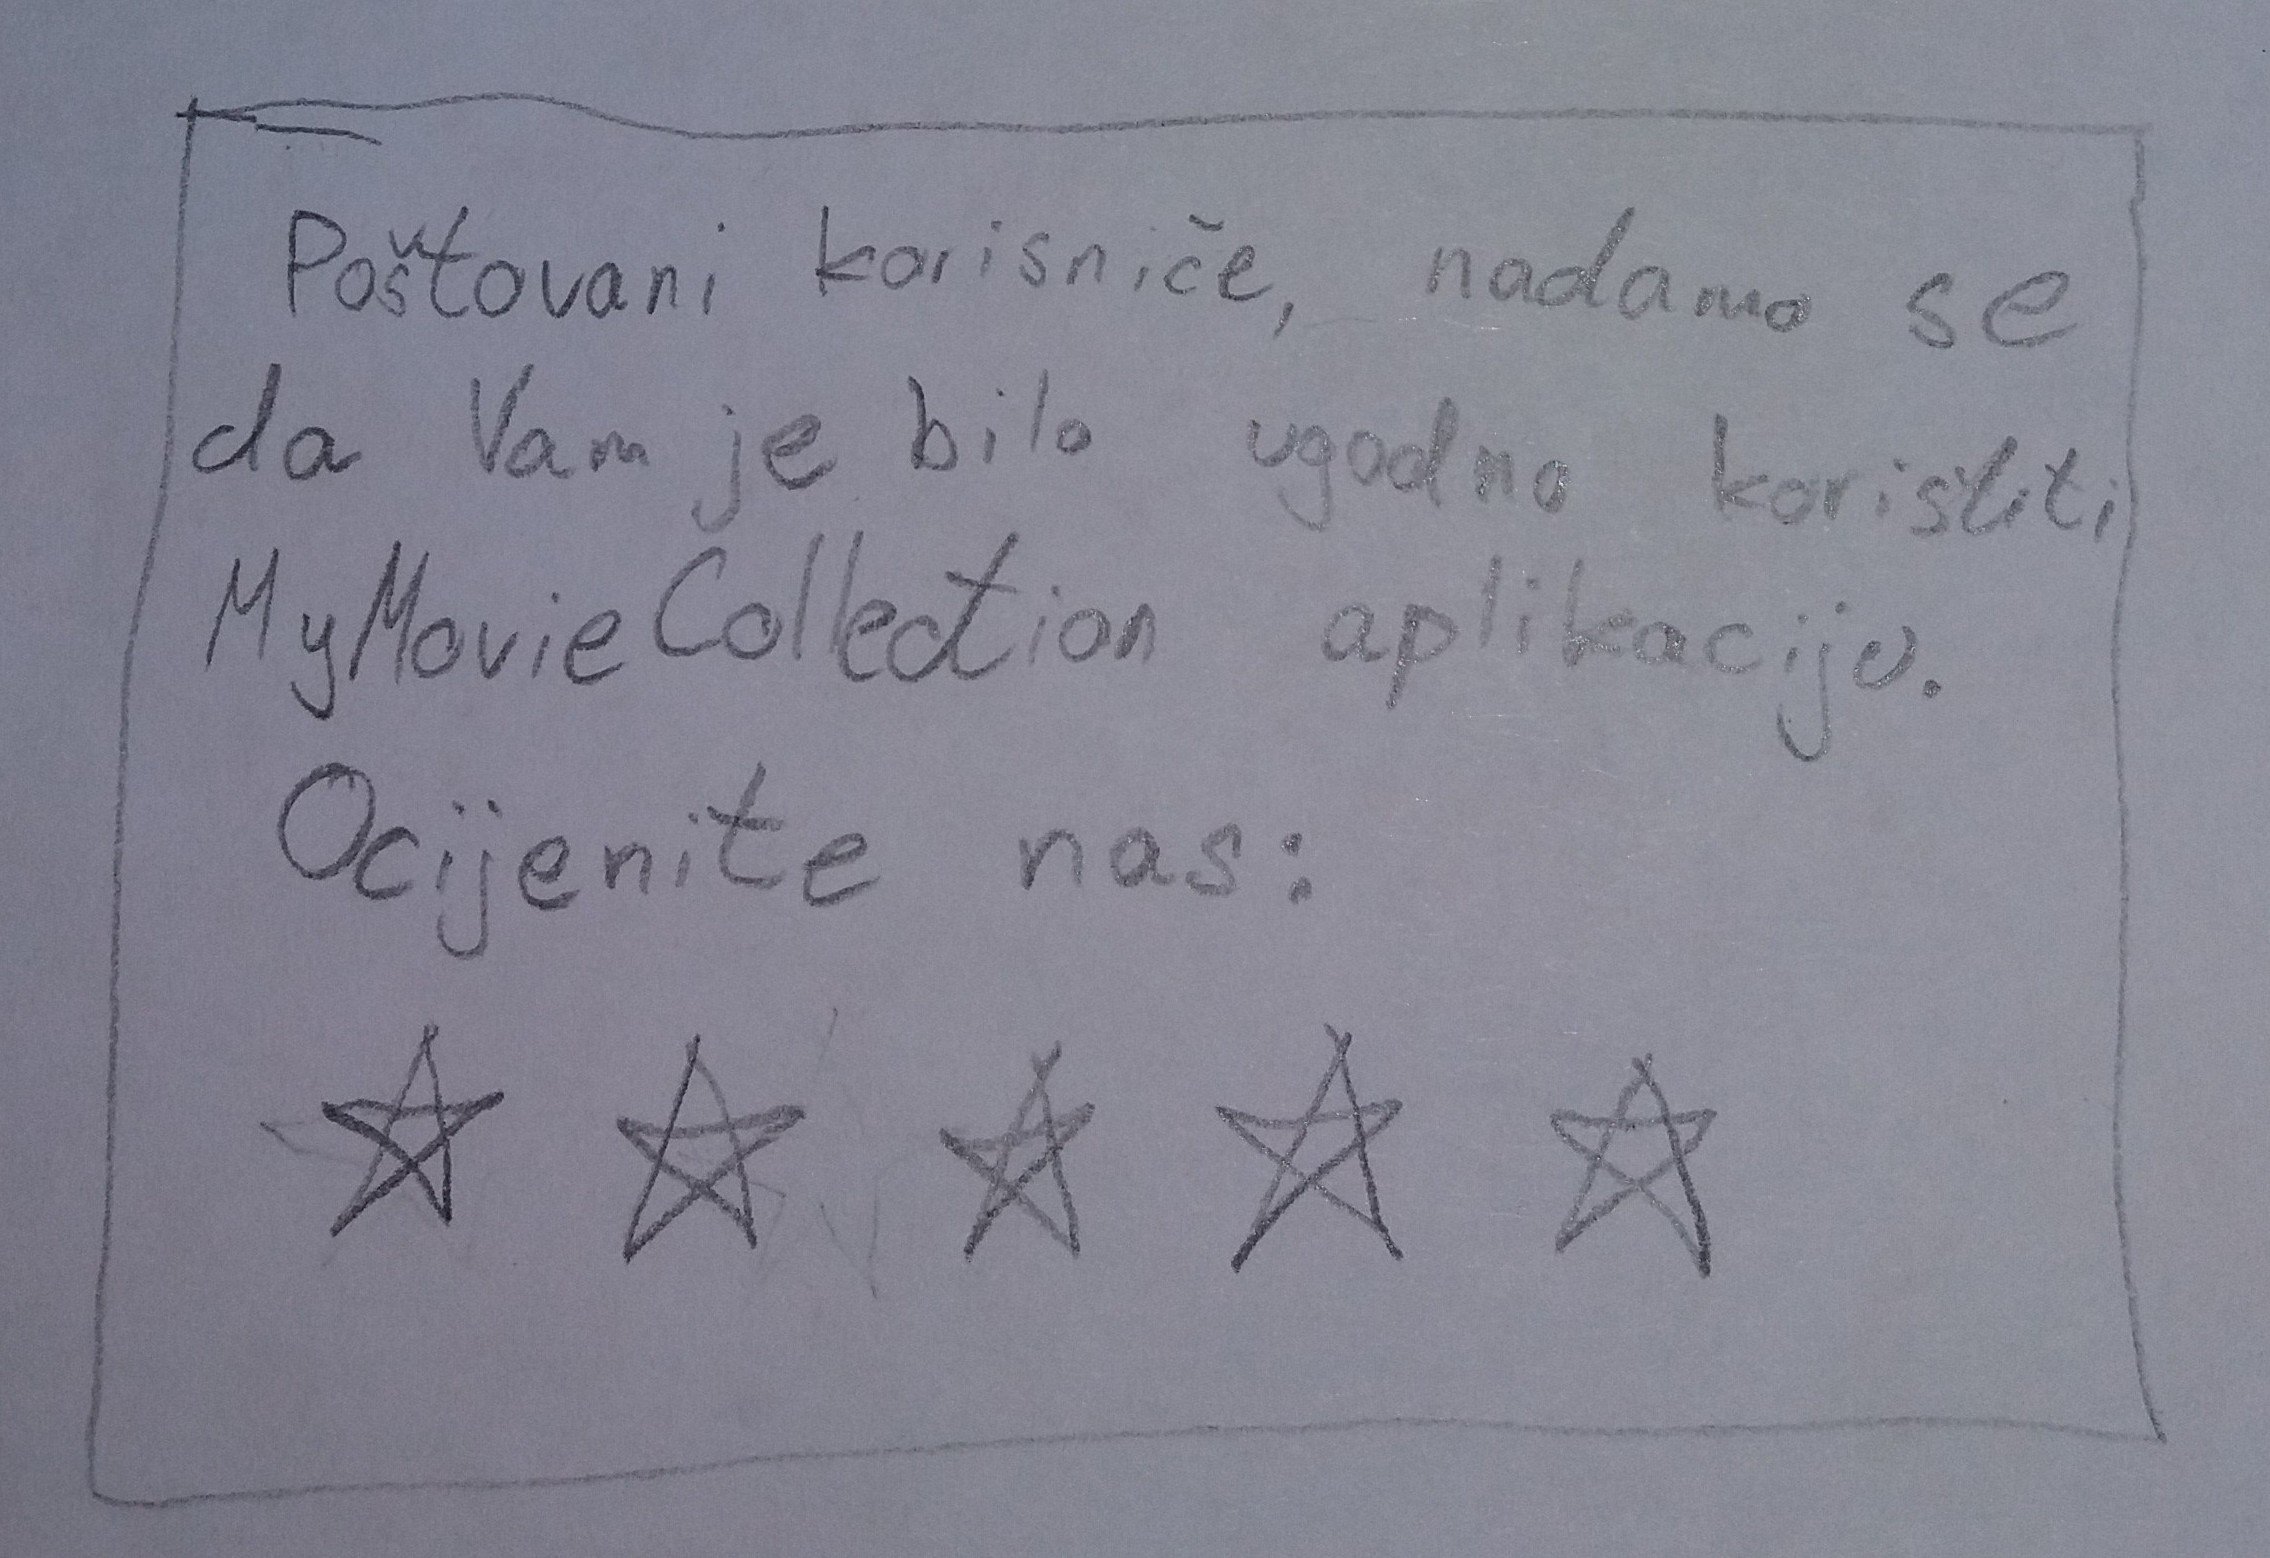 Poštovani korisniče, nadamo se
da Vam je bilo ugodno koristiti
MyMovieCollection aplikaciju.
Ocijenite nas: